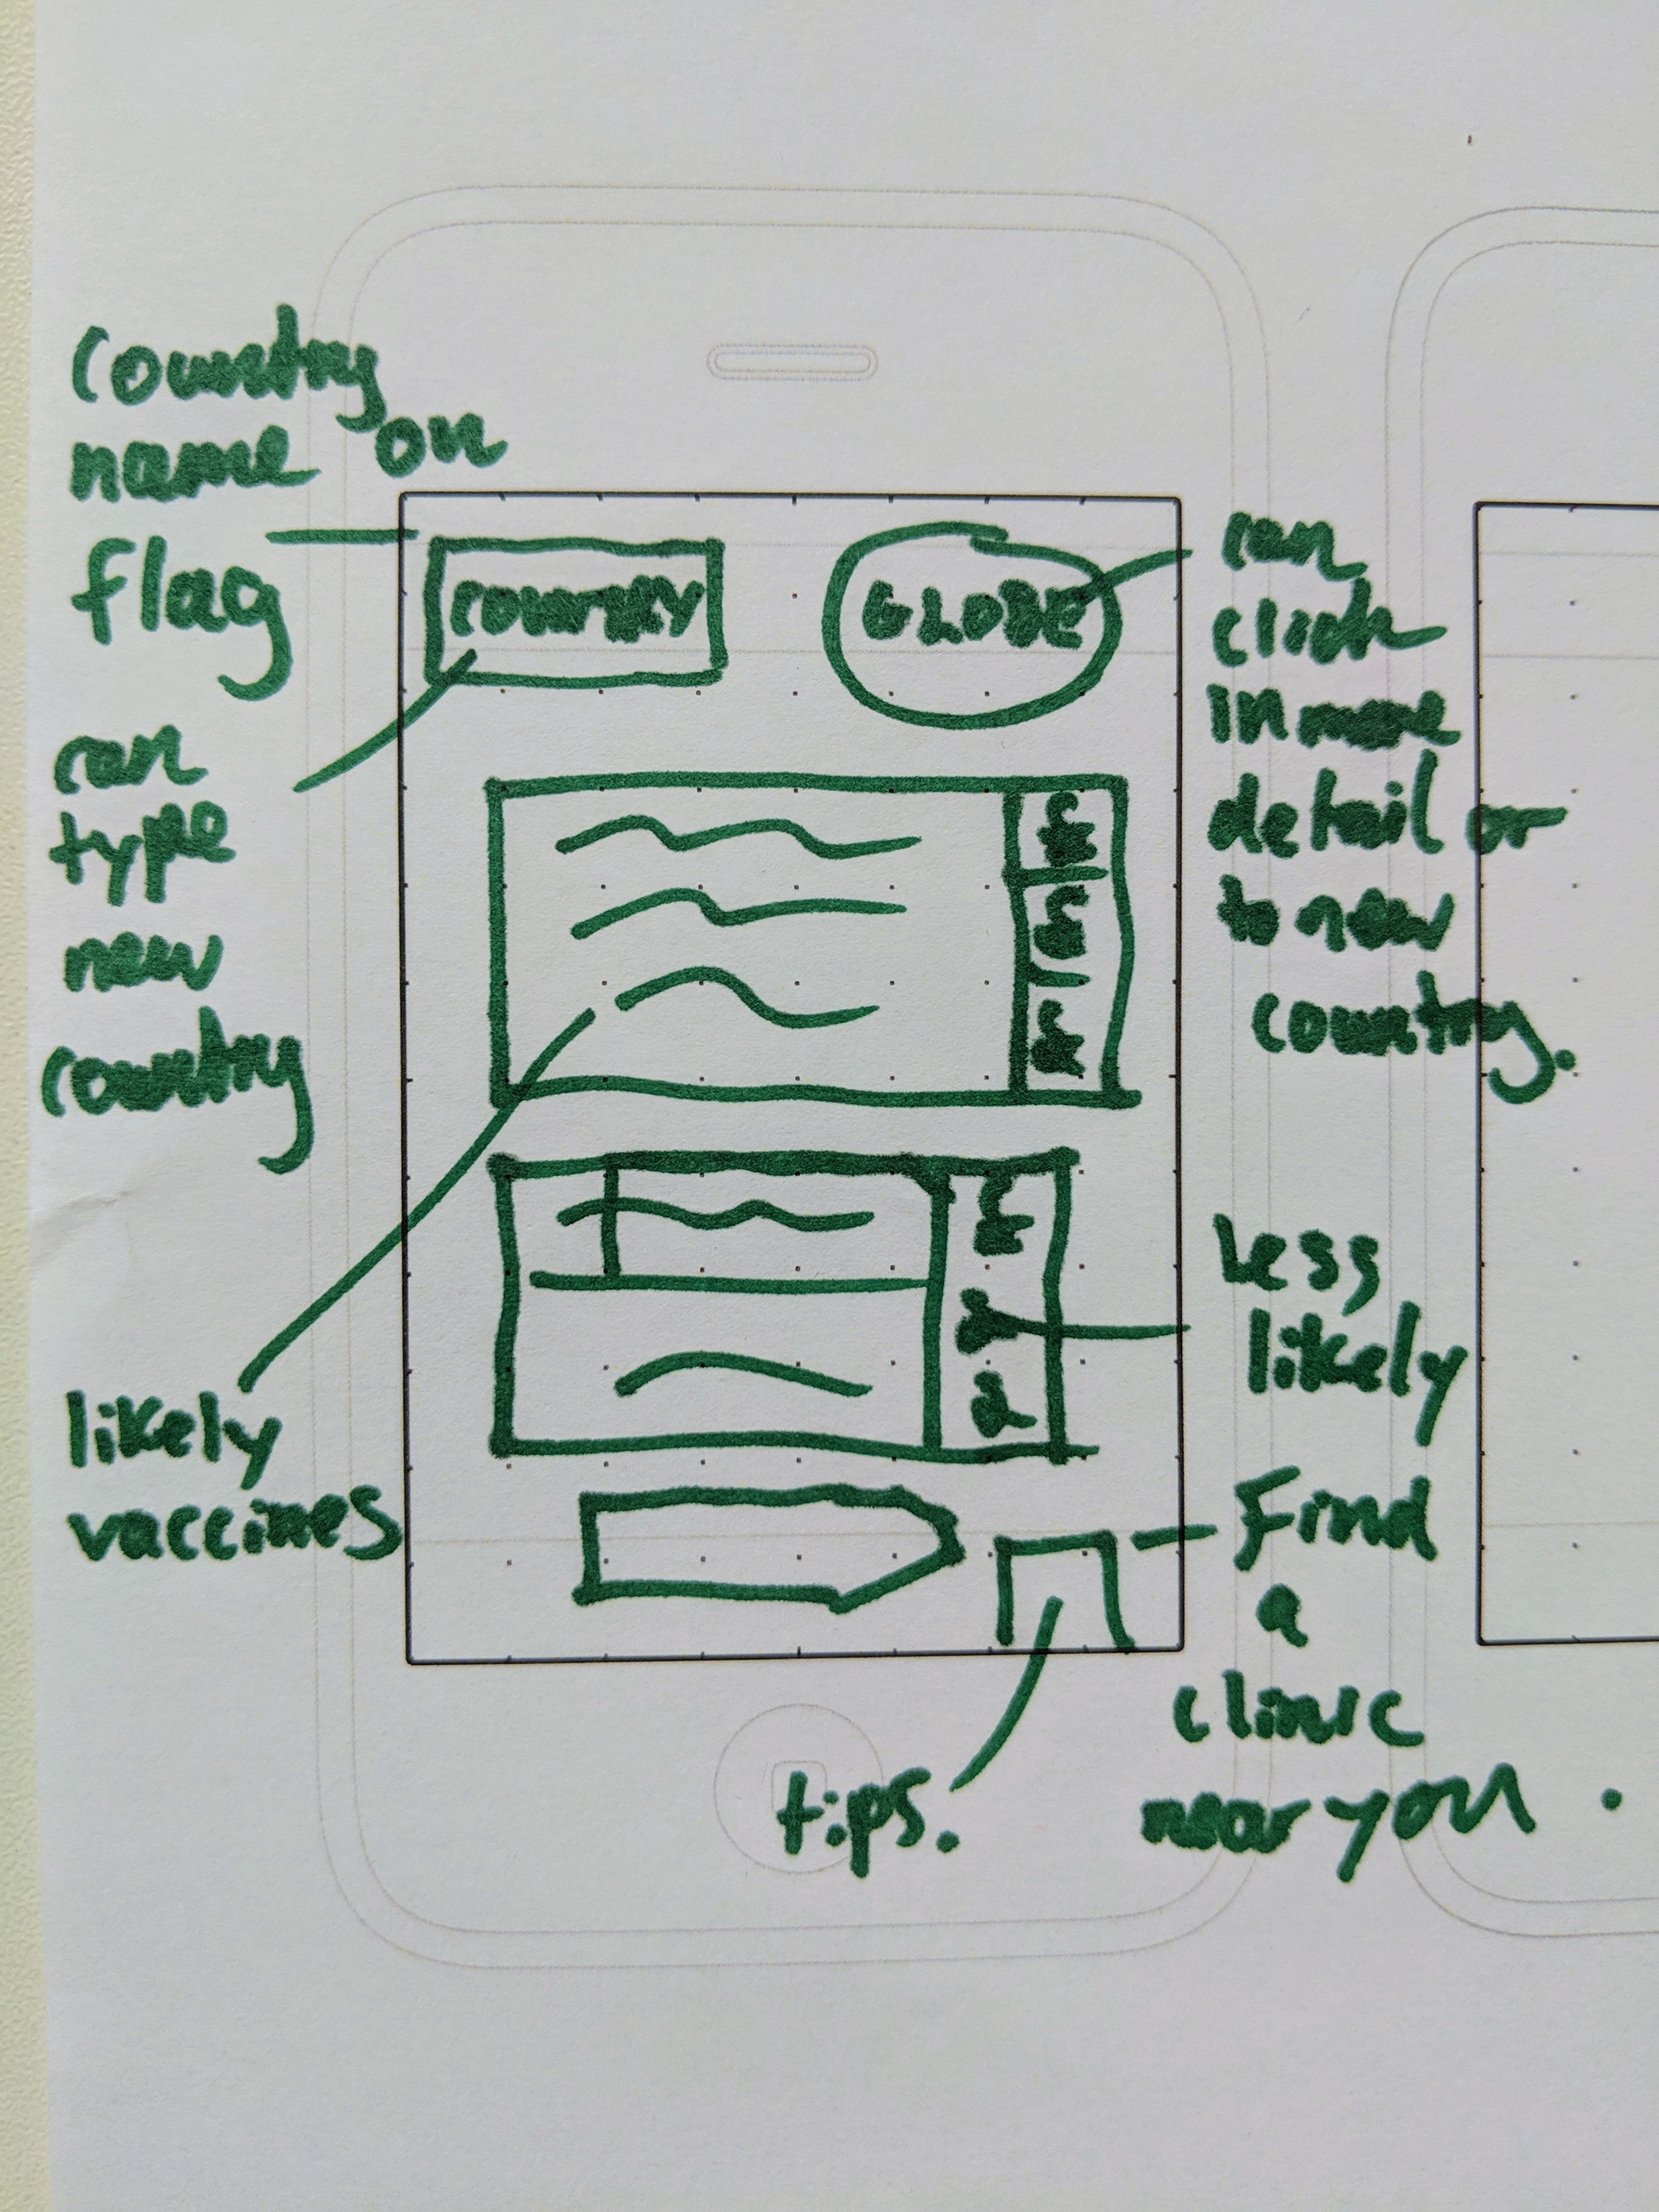 Country
name on
flag
can
type
new
country
likely
vaccines
COUNTRY
GLOBE
can
click
in more
detail or
to new
country.
Less
likely
Find
a
clinic
near you.
tips.